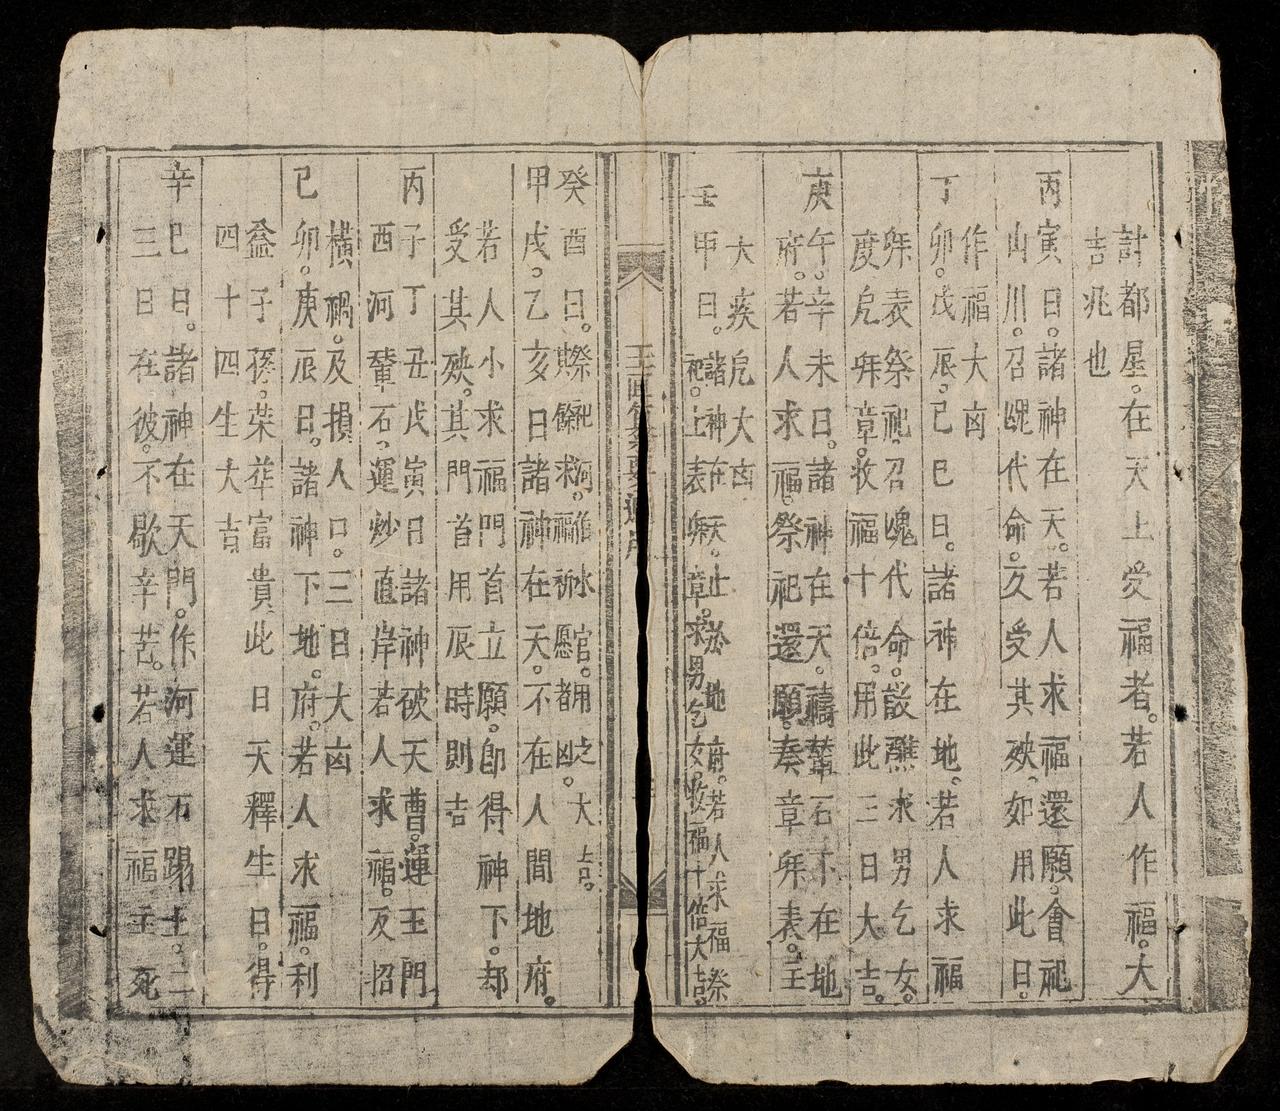 計都星。在天上受福者。若人作福。大
吉兆也
丙寅日。諸神在天。若人求福還願。會祀
山川。召䰟代命。反受其殃。如用此日。
作福大凶
丁卯。戊辰。己巳日。諸神在地。若人求福
𠦑表祭祀。召魂代命。設醮求男乞女。
度厄𠦑章。收福十倍。用此三日大吉。
庚午。辛未日。諸神在天。禱輦石不在地
府。若人求福。祭祀還願。奏章𠦑表。主
大疾厄大凶
壬申日。諸神在天。上於地府。若人求福祭
祀。上表𠦑章。求男乞女。收福十倍大吉。
癸酉日。祭祀河伯水官。用之大吉。
餘求福祈愿者凶。
甲戌。乙亥日諸神在天。不在人間地府。
若人小求福門首立願。即得神下。却
受其殃。其門首用辰時則吉
丙子丁丑戊寅日諸神破天曹。運玉門
西河輦石。運炒直岸若人求福。反招
橫禍。及損人口。三日大凶
己卯。庚辰日。諸神下地。府。若人求福。利
益子孫。荣華富貴此日天釋生日。得
四十四生大吉
辛巳日。諸神在天門。作河運石踢土。二
三日在彼。不歇辛苦。若人求福主死